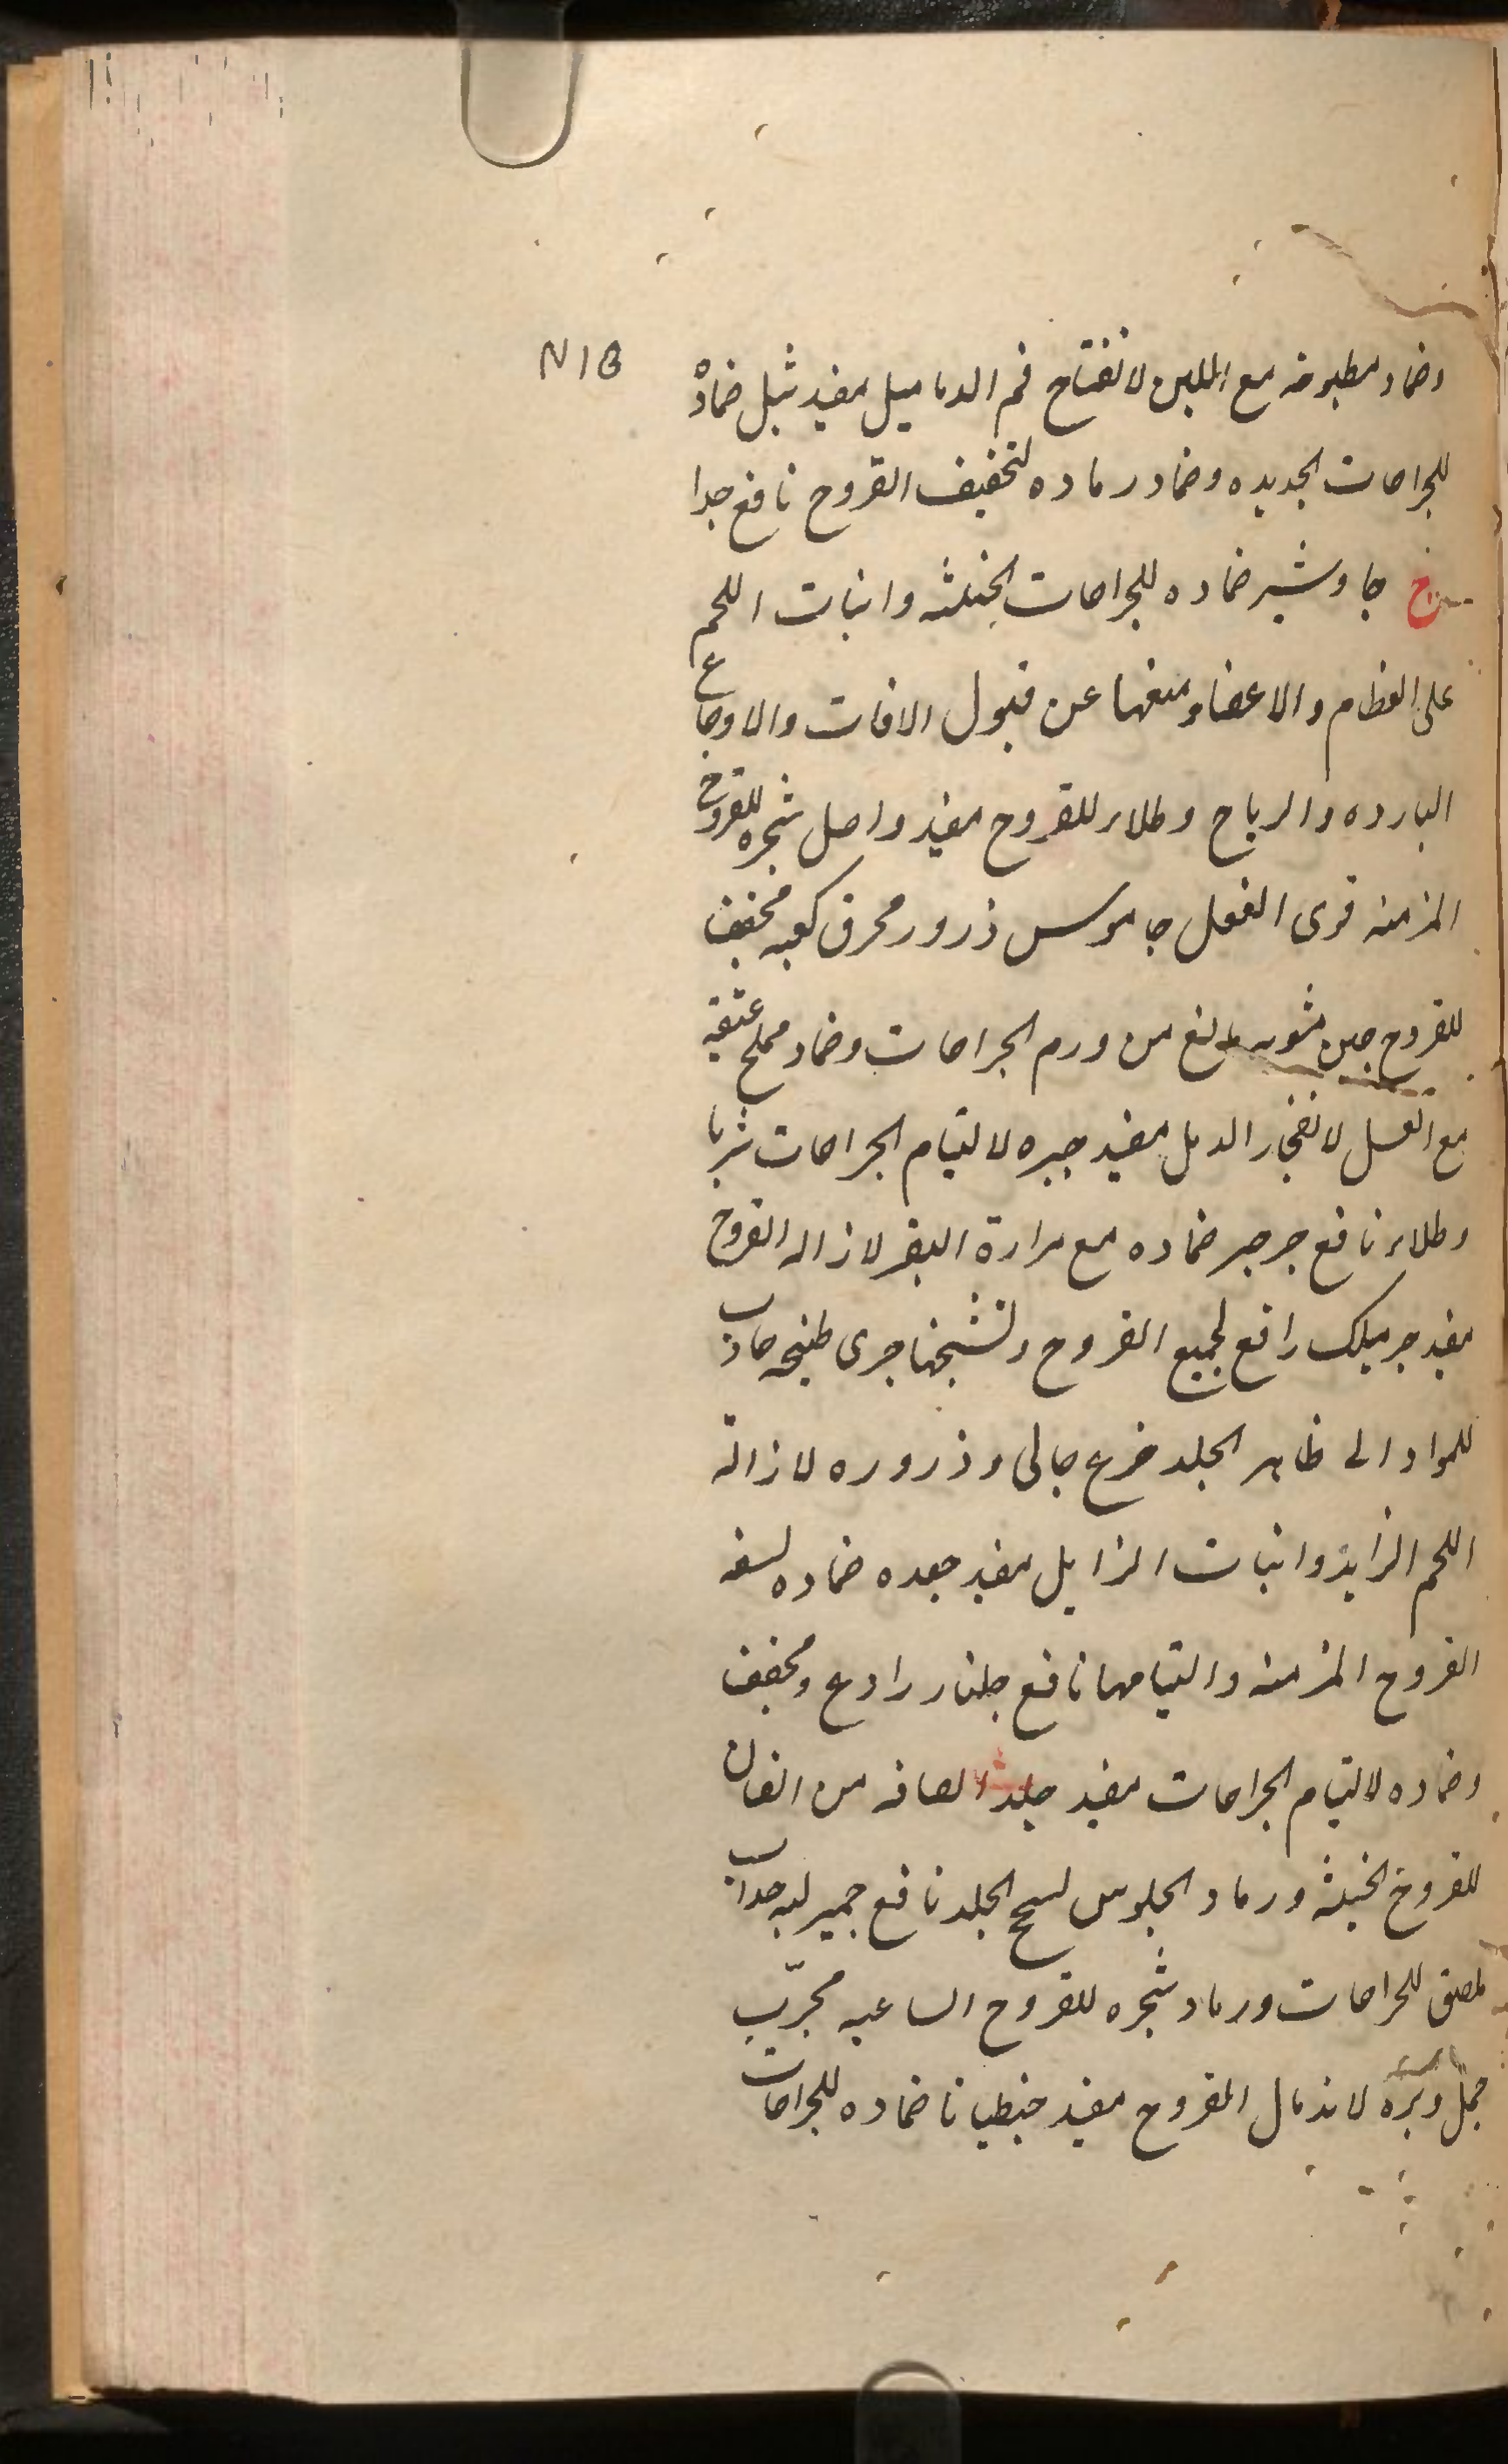 وضماد مطبوخه مع اللبن لانفتاح فم الدماميل مفيد ثيل ضماده
للجراحات الجديده وضماد رماده لتجفيف القروح نافع جدا
ج جاوشير ضماده للجراحات الخبيثه وانبات اللحم
على العظام والاعضاء ومنعها عن قبول الافات والاوجاع
البارده والرياح وطلاء للقروح مفيد واصل شجره للقروح
المزمنه قوى الفعل جاموس ذرور محرق كعبه مجفف
للقروح جبن مشويه مانع من ورم الجراحات وضماد مملح عتيقه
مع العسل لانفجار الدمل مفيد جبره لالتيام الجراحات شربا
وطلاء نافع جرجير ضماده مع مرارة البقر لازاله القروح
مفيد جرميلك رافع لجميع القروح وتشنجها جرى طبيخه جاذب
للمواد الى ظاهر الجلد جزع جالى وذروره لازالة
اللحم الزايد وانبات الزايل مفيد جعده ضماده
القروح المزمنه والتيامها نافع جلنار رادع ومجفف
وضماده لالتيام الجراحات مفيد جلد من
للقروح الخبيثه ورماد الجلوس لسحج الجلد نافع جميز لبنه جذاب
ملصق للجراحات ورماد شجره للقروح الساعيه مجرّب
جمل وبره لاندمال القروح مفيد جنطيانا ضماده للجراحات
N1B